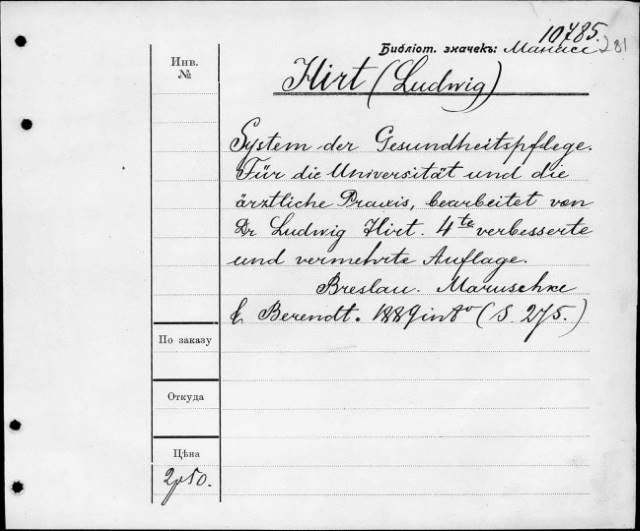 10785.
Библіот. значекъ: 281
Инв.
№
Hirt (Ludwig)
System der Gesundheitspflege.
Für die Universität und die
ärztliche Praxis, bearbeitet von
Dr Ludwig Hirt. 4te verbesserte
und vermehrte Auflage.
Breslau. Maruschke
& Berendt. 1889 in 8o (S. 275.)
По заказу
Откуда
Цѣна
2р50.